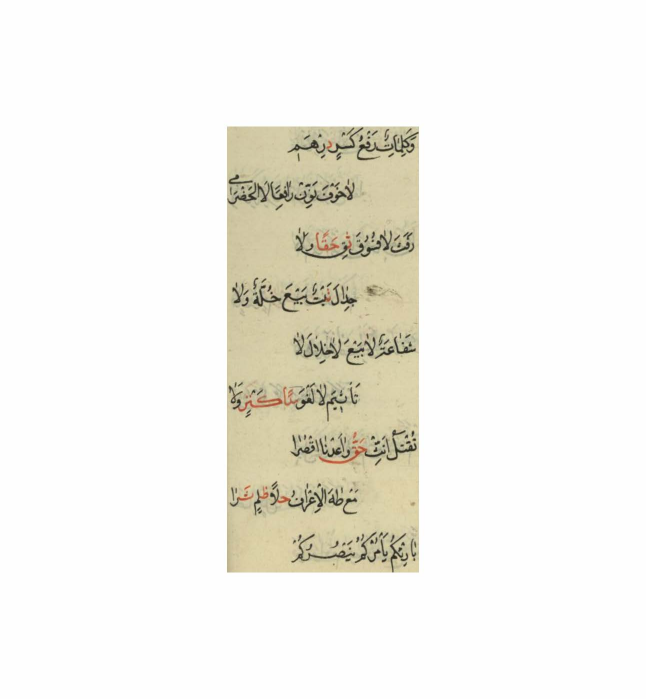 وَكَلِمَاتٌ رَفْعُ كَسْرٍ دِرْهَمِ
لَا خَوْفَ نَوِّنْ رَافِعًا لَا الحَضْرَمِي
رَفَثَ لَا فُسُوقَ ثِقْ حَقًّا وَلَا
جِدَالَ ثَبْتٌ بَيْعَ خُلَّةٌ وَلَا
شَفَاعَةٌ لَا بَيْعَ لَا خِلَالَ لَا
تَأْثِيمَ لَا لَغْوَ مَدًا كَنْزٍ وَلَا
تُقْبَلُ أَنِّثْ حَقُّ وَاعَدْنَا اقْصُرَا
مَعْ طٰهَ الْاِعْرَافِ حَلَا ظُلْمٍ ثَرَا
بَارِئِكُمْ يَأْمُرْكُمُ يَنْصُرْكُمُ